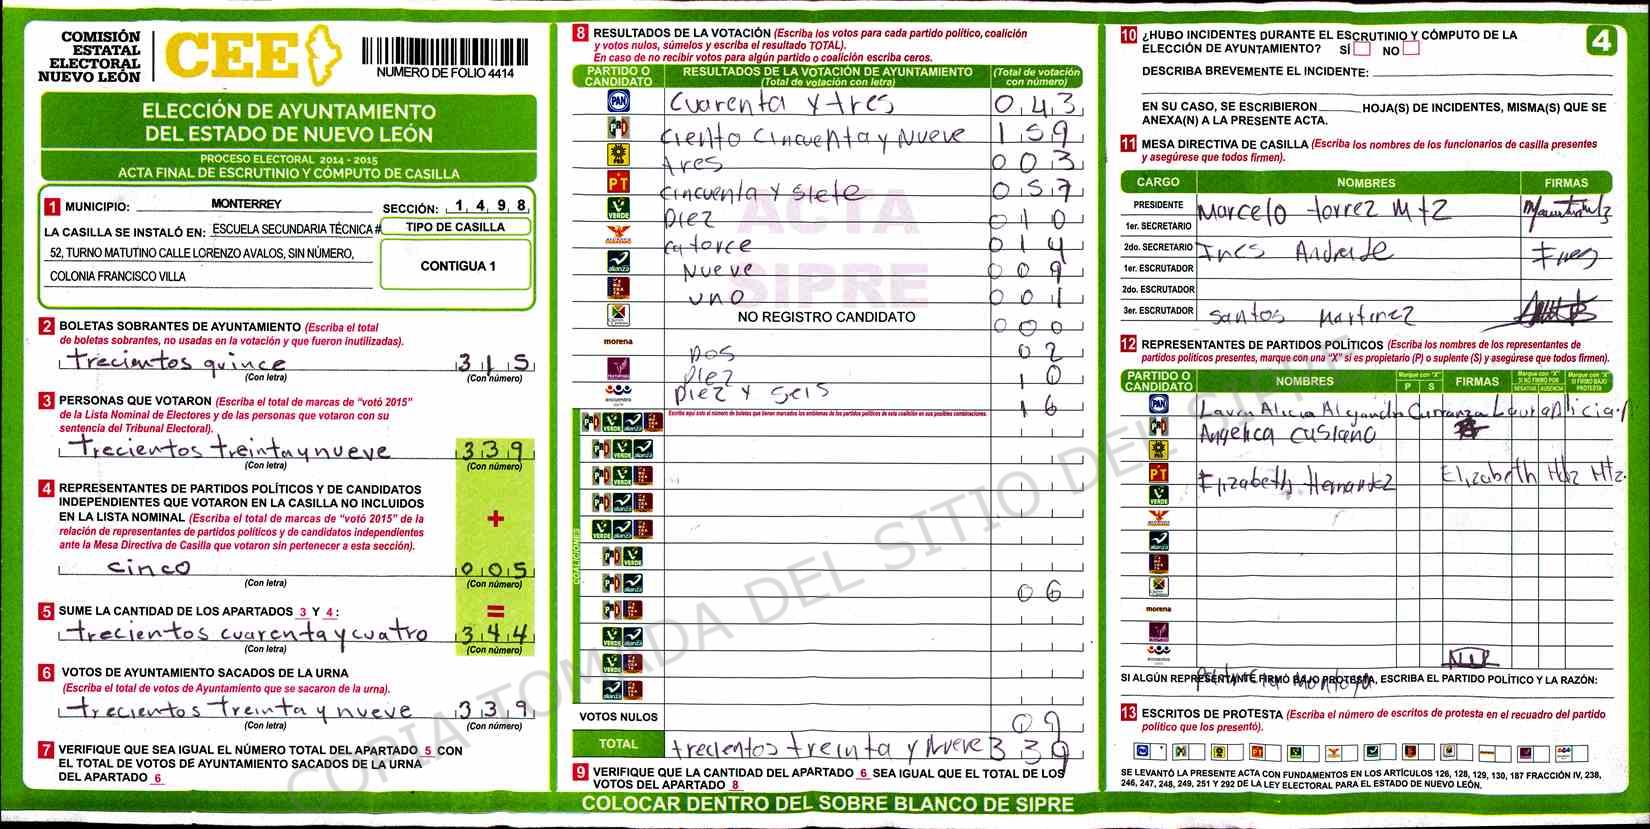 COMISIÓN
ESTATAL
ELECTORAL
NUEVO LEÓN
CEE
NUMERO DE FOLIO 4414
ELECCIÓN DE AYUNTAMIENTO
DEL ESTADO DE NUEVO LEÓN
PROCESO ELECTORAL 2014 - 2015
ACTA FINAL DE ESCRUTINIO Y CÓMPUTO DE CASILLA
1 MUNICIPIO: MONTERREY SECCIÓN: 1,4,9,8
LA CASILLA SE INSTALÓ EN: ESCUELA SECUNDARIA TÉCNICA#
52, TURNO MATUTINO CALLE LORENZO AVALOS, SIN NÚMERO,
COLONIA FRANCISCO VILLA
TIPO DE CASILLA
CONTIGUA 1
2 BOLETAS SOBRANTES DE AYUNTAMIENTO (Escriba el total
de boletas sobrantes, no usadas en la votación y que fueron inutilizadas).
trecientos quince 3 1 5
(Con letra) (Con número)
3 PERSONAS QUE VOTARON (Escriba el total de marcas de "votó 2015"
de la Lista Nominal de Electores y de las personas que votaron con su
sentencia del Tribunal Electoral).
trecientos treinta y nueve 3 3 9
(Con letra) (Con número)
4 REPRESENTANTES DE PARTIDOS POLÍTICOS Y DE CANDIDATOS
INDEPENDIENTES QUE VOTARON EN LA CASILLA NO INCLUIDOS
EN LA LISTA NOMINAL (Escriba el total de marcas de "votó 2015" de la
relación de representantes de partidos políticos y de candidatos independientes
ante la Mesa Directiva de Casilla que votaron sin pertenecer a esta sección).
+
cinco 0 0 5
(Con letra) (Con número)
5 SUME LA CANTIDAD DE LOS APARTADOS 3 Y 4: =
trecientos cuarenta y cuatro 3 4 4
(Con letra) (Con número)
6 VOTOS DE AYUNTAMIENTO SACADOS DE LA URNA
(Escriba el total de votos de Ayuntamiento que se sacaron de la urna).
trecientos treinta y nueve 3 3 9
(Con letra) (Con número)
7 VERIFIQUE QUE SEA IGUAL EL NÚMERO TOTAL DEL APARTADO 5 CON
EL TOTAL DE VOTOS DE AYUNTAMIENTO SACADOS DE LA URNA
DEL APARTADO 6
8 RESULTADOS DE LA VOTACIÓN (Escriba los votos para cada partido político, coalición
y votos nulos, súmelos y escriba el resultado TOTAL).
En caso de no recibir votos para algún partido o coalición escriba ceros.
PARTIDO O CANDIDATO RESULTADOS DE LA VOTACIÓN DE AYUNTAMIENTO (Total de votación con letra) (Total de votación con número)
PAN Cuarenta y tres 0 4 3
PRD Ciento cincuenta y Nueve 1 5 9
PRD tres 0 0 3
PT cincuenta y siete 0 5 7
VERDE Diez 0 1 0
catorce 0 1 4
alianza Nueve 0 0 9
uno 0 0 1
NO REGISTRO CANDIDATO 0 0 0
morena Dos 0 2
Diez 1 0
encuentro Diez y seis 1 6
Escriba aquí solo el número de boletas que tienen marcados los emblemas de los partidos políticos de esta coalición en sus posibles combinaciones.
COALICIONES
0 6
VOTOS NULOS 0 9
TOTAL trecientos treinta y Nueve 3 3 9
9 VERIFIQUE QUE LA CANTIDAD DEL APARTADO 6 SEA IGUAL QUE EL TOTAL DE LOS
VOTOS DEL APARTADO 8
COLOCAR DENTRO DEL SOBRE BLANCO DE SIPRE
ACTA
SIPRE
COPIA TOMADA DEL SITIO DEL SIPRE
10 ¿HUBO INCIDENTES DURANTE EL ESCRUTINIO Y CÓMPUTO DE LA
ELECCIÓN DE AYUNTAMIENTO? SÍ NO
4
DESCRIBA BREVEMENTE EL INCIDENTE:
EN SU CASO, SE ESCRIBIERON HOJA(S) DE INCIDENTES, MISMA(S) QUE SE
ANEXA(N) A LA PRESENTE ACTA.
11 MESA DIRECTIVA DE CASILLA (Escriba los nombres de los funcionarios de casilla presentes
y asegúrese que todos firmen).
CARGO NOMBRES FIRMAS
PRESIDENTE Marcelo torrez Mtz
1er. SECRETARIO
2do. SECRETARIO Ines Andrade Ines
1er. ESCRUTADOR
2do. ESCRUTADOR
3er. ESCRUTADOR Santos Martinez
12 REPRESENTANTES DE PARTIDOS POLÍTICOS (Escriba los nombres de los representantes de
partidos políticos presentes, marque con una "X" si es propietario (P) o suplente (S) y asegúrese que todos firmen).
PARTIDO O CANDIDATO NOMBRES Marque con "X" P S FIRMAS Marque con "X" SI NO FIRMÓ POR NEGATIVA AUSENCIA Marque con "X" SI FIRMÓ BAJO PROTESTA
PAN Laura Alicia Alejandro Carranza Laura Alicia
Angelica
PT Elizabeth Hernandez Elizabeth Hdz Mtz.
VERDE
morena
SI ALGÚN REPRESENTANTE FIRMÓ BAJO PROTESTA, ESCRIBA EL PARTIDO POLÍTICO Y LA RAZÓN:
Montoya
13 ESCRITOS DE PROTESTA (Escriba el número de escritos de protesta en el recuadro del partido
político que los presentó).
SE LEVANTÓ LA PRESENTE ACTA CON FUNDAMENTOS EN LOS ARTÍCULOS 126, 128, 129, 130, 187 FRACCIÓN IV, 238,
246, 247, 248, 249, 251 Y 292 DE LA LEY ELECTORAL PARA EL ESTADO DE NUEVO LEÓN.